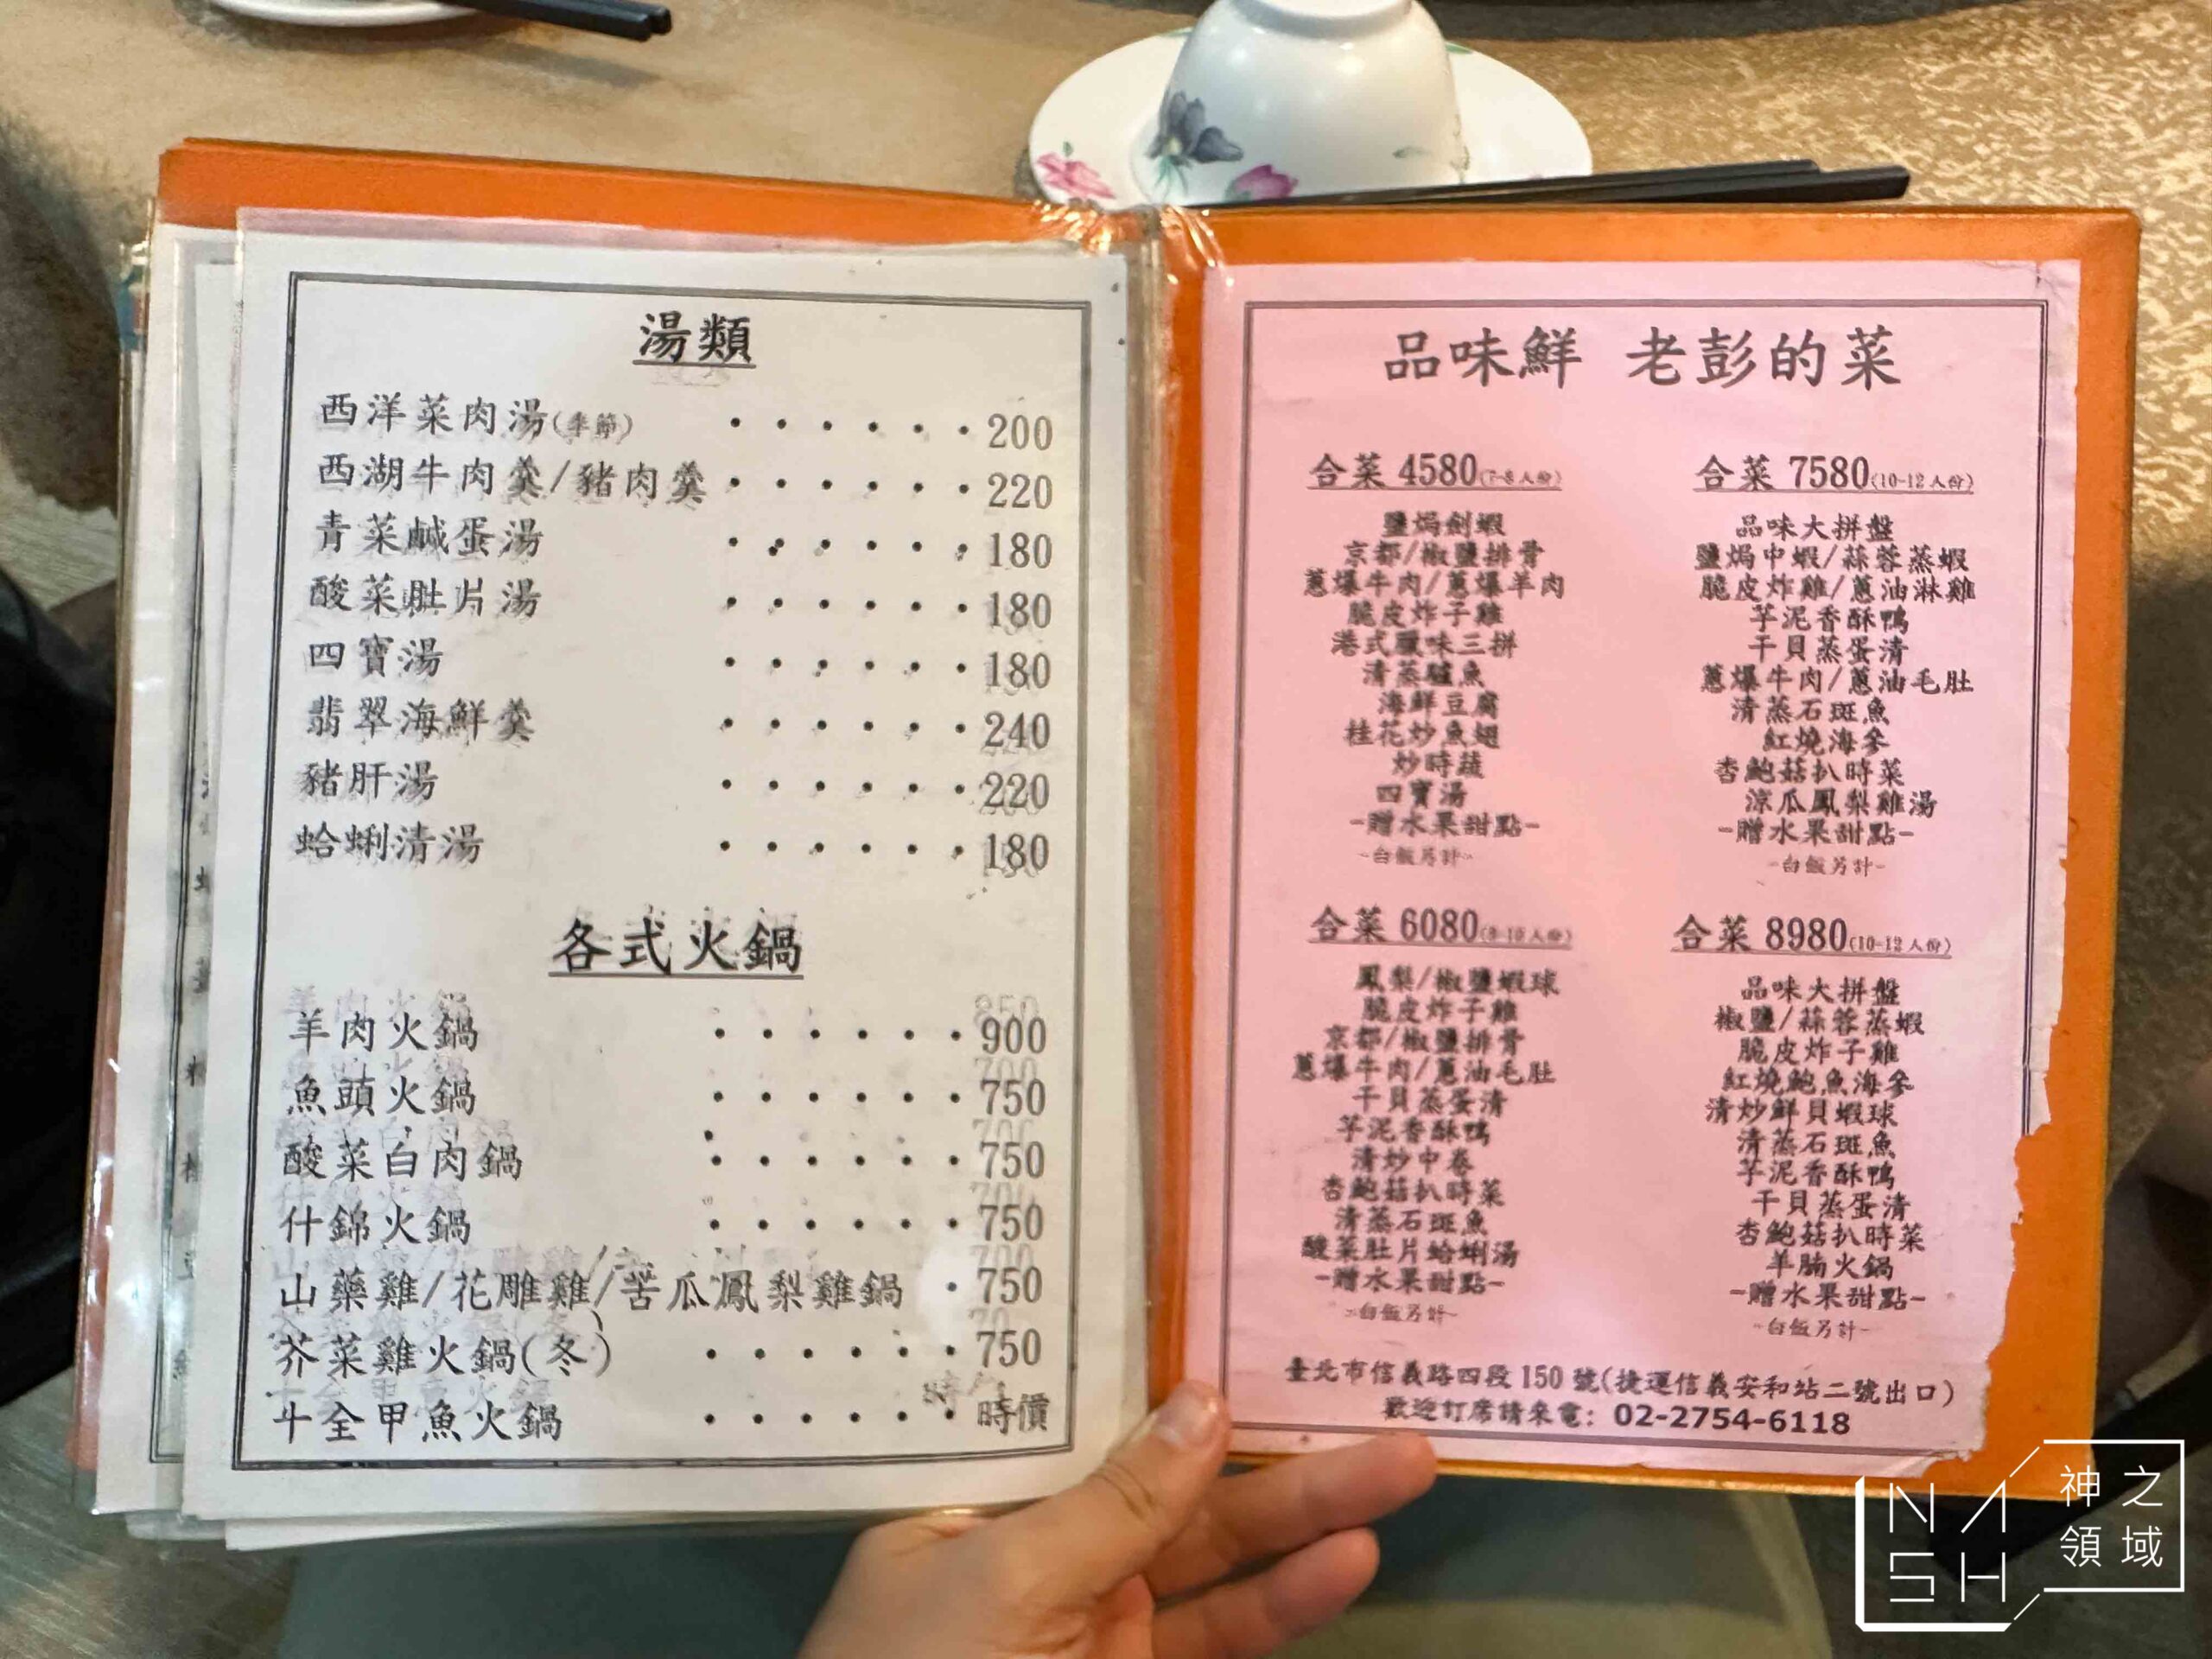 湯類
西洋菜肉湯(季節) ・・・・・・200
西湖牛肉羹/豬肉羹 ・・・・・・220
青菜鹹蛋湯 ・・・・・・180
酸菜肚片湯 ・・・・・・180
四寶湯 ・・・・・・180
翡翠海鮮羹 ・・・・・・240
豬肝湯 ・・・・・・220
蛤蜊清湯 ・・・・・・180
各式火鍋
羊肉火鍋 ・・・・・・900
魚頭火鍋 ・・・・・・750
酸菜白肉鍋 ・・・・・・750
什錦火鍋 ・・・・・・750
山藥雞/花雕雞/苦瓜鳳梨雞鍋 ・750
芥菜雞火鍋(冬) ・・・・・・750
十全甲魚火鍋 ・・・・・・時價
品味鮮 老彭的菜
合菜 4580(7-8人份)
鹽焗劍蝦
京都/椒鹽排骨
蔥爆牛肉/蔥爆羊肉
脆皮炸子雞
港式臘味三拼
清蒸鱸魚
海鮮豆腐
桂花炒魚翅
炒時蔬
四寶湯
-贈水果甜點-
-白飯另計-
合菜 7580(10-12人份)
品味大拼盤
鹽焗中蝦/蒜蓉蒸蝦
脆皮炸雞/蔥油淋雞
芋泥香酥鴨
干貝蒸蛋清
蔥爆牛肉/蔥油毛肚
清蒸石斑魚
紅燒海參
杏鮑菇扒時菜
涼瓜鳳梨雞湯
-贈水果甜點-
-白飯另計-
合菜 6080(8-10人份)
鳳梨/椒鹽蝦球
脆皮炸子雞
京都/椒鹽排骨
蔥爆牛肉/蔥油毛肚
干貝蒸蛋清
芋泥香酥鴨
清炒中卷
杏鮑菇扒時菜
清蒸石斑魚
酸菜肚片蛤蜊湯
-贈水果甜點-
-白飯另計-
合菜 8980(10-12人份)
品味大拼盤
椒鹽/蒜蓉蒸蝦
脆皮炸子雞
紅燒鮑魚海參
清炒鮮貝蝦球
清蒸石斑魚
芋泥香酥鴨
干貝蒸蛋清
杏鮑菇扒時菜
羊腩火鍋
-贈水果甜點-
-白飯另計-
臺北市信義路四段150號(捷運信義安和站二號出口)
歡迎訂席請來電: 02-2754-6118
NASH
神之
領域